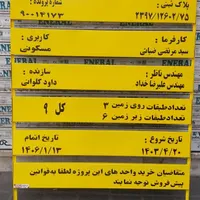 پلاک ثبتی :
شماره پرونده :
۲۳۹۷/۱۲۶۰۲/۷۵
۹۰۰۱۳۱۷۳
کارفرما :
کاربری :
سید مرتضی ضیائی
مسکونی
مهندس ناظر :
سازنده :
مهندس علیرضا خداد
داود کلوانی
تعداد طبقات روی زمین ۳
کل ۹
تعداد طبقات زیر زمین ۶
تاریخ شروع :
تاریخ اتمام
۱۴۰۳/۴/۲۰
۱۴۰۶/۱/۱۳
متقاضیان خرید واحد های این پروژه لطفا به قوانین
پیش فروش توجه نمایند